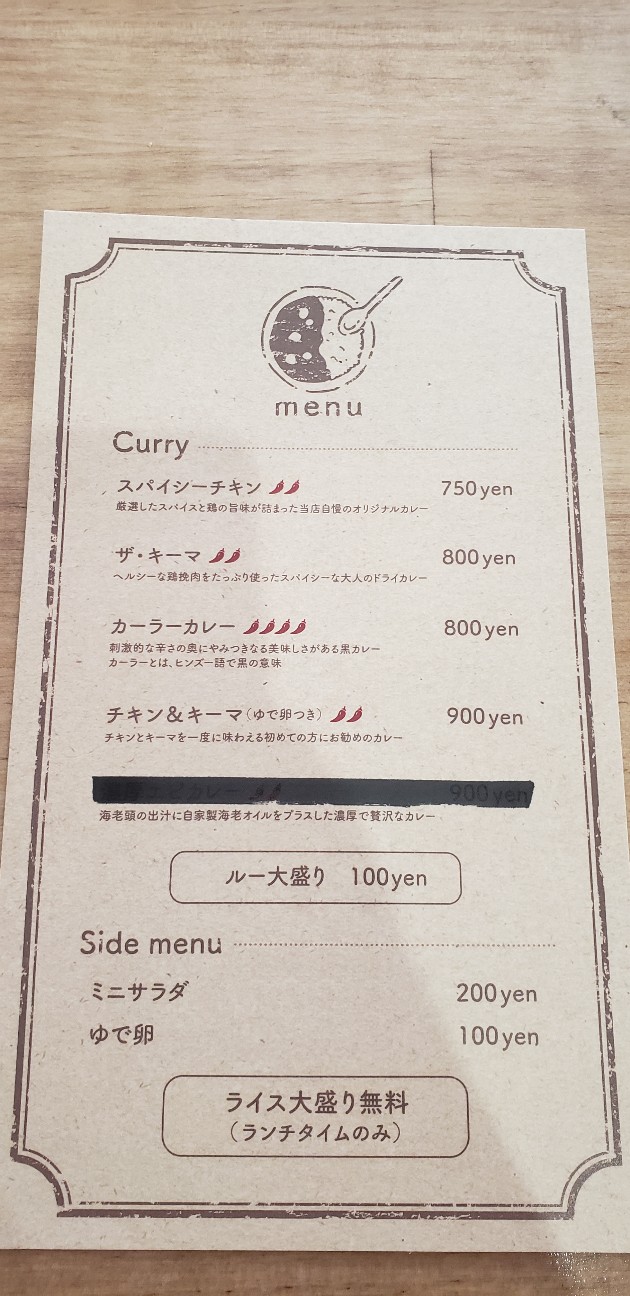 menu
Curry
スパイシーチキン 750yen
厳選したスパイスと鶏の旨味が詰まった当店自慢のオリジナルカレー
ザ・キーマ 800yen
ヘルシーな鶏挽肉をたっぷり使ったスパイシーな大人のドライカレー
カーラーカレー 800yen
刺激的な辛さの奥にやみつきなる美味しさがある黒カレー
カーラーとは、ヒンズー語で黒の意味
チキン&キーマ(ゆで卵つき) 900yen
チキンとキーマを一度に味わえる初めての方にお勧めのカレー
カレー 900yen
海老頭の出汁に自家製海老オイルをプラスした濃厚で贅沢なカレー
ルー大盛り 100yen
Side menu
ミニサラダ 200yen
ゆで卵 100yen
ライス大盛り無料
(ランチタイムのみ)